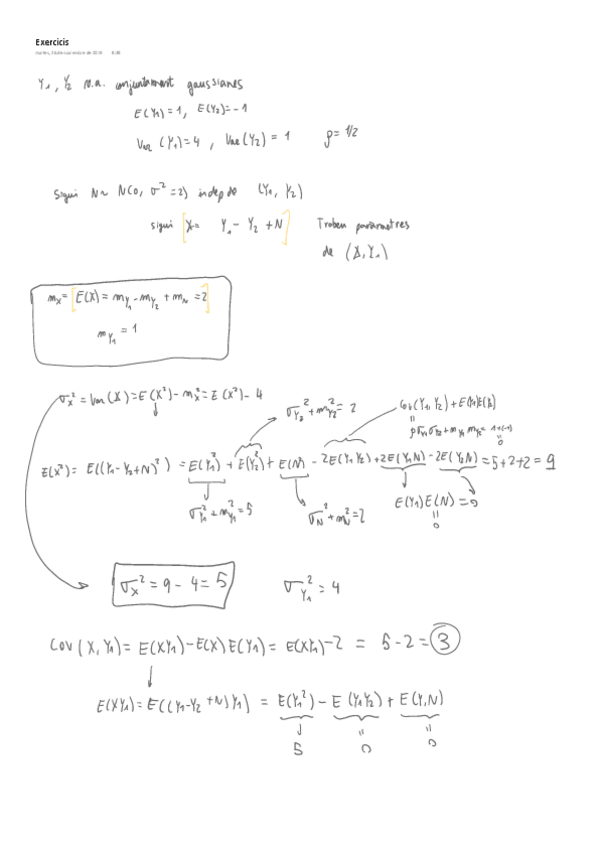 Exercicis
Y1, Y2 v.a. conjuntament gaussianes
E(Y1)=1, E(Y2)=-1
Var (Y1)=4, Var(Y2)=1 ρ=1/2
Sigui N~N(0, σ²=2) indep de (Y1, Y2)
sigui [X= Y1 - Y2 + N] Troben paràmetres
de (X,Y1)
mx = [E(X) = mY1 - mY2 + mN = 2]
mY1 = 1
σx² = Var(X) = E(X²) - mx² = E(X²) - 4
σY2² + mY2² = 2
Cov(Y1, Y2) + E(Y1)E(Y2)
=
ρσY1σY2 + mY1 mY2 = 1+(-1)
=
0
E(X²) = E((Y1-Y2+N)²) = E(Y1²) + E(Y2²) + E(N²) - 2E(Y1Y2) + 2E(Y1N) - 2E(Y2N) = 5+2+2 = 9
σY1² + mY1² = 5
σN² + mN² = 2
E(Y1)E(N) = 0
=
0
σx² = 9 - 4 = 5
σY1² = 4
Cov(X, Y1) = E(XY1) - E(X)E(Y1) = E(XY1) - 2 = 5 - 2 = 3
E(XY1) = E((Y1-Y2+N)Y1) = E(Y1²) - E(Y1Y2) + E(Y1N)
5
=
0
=
0